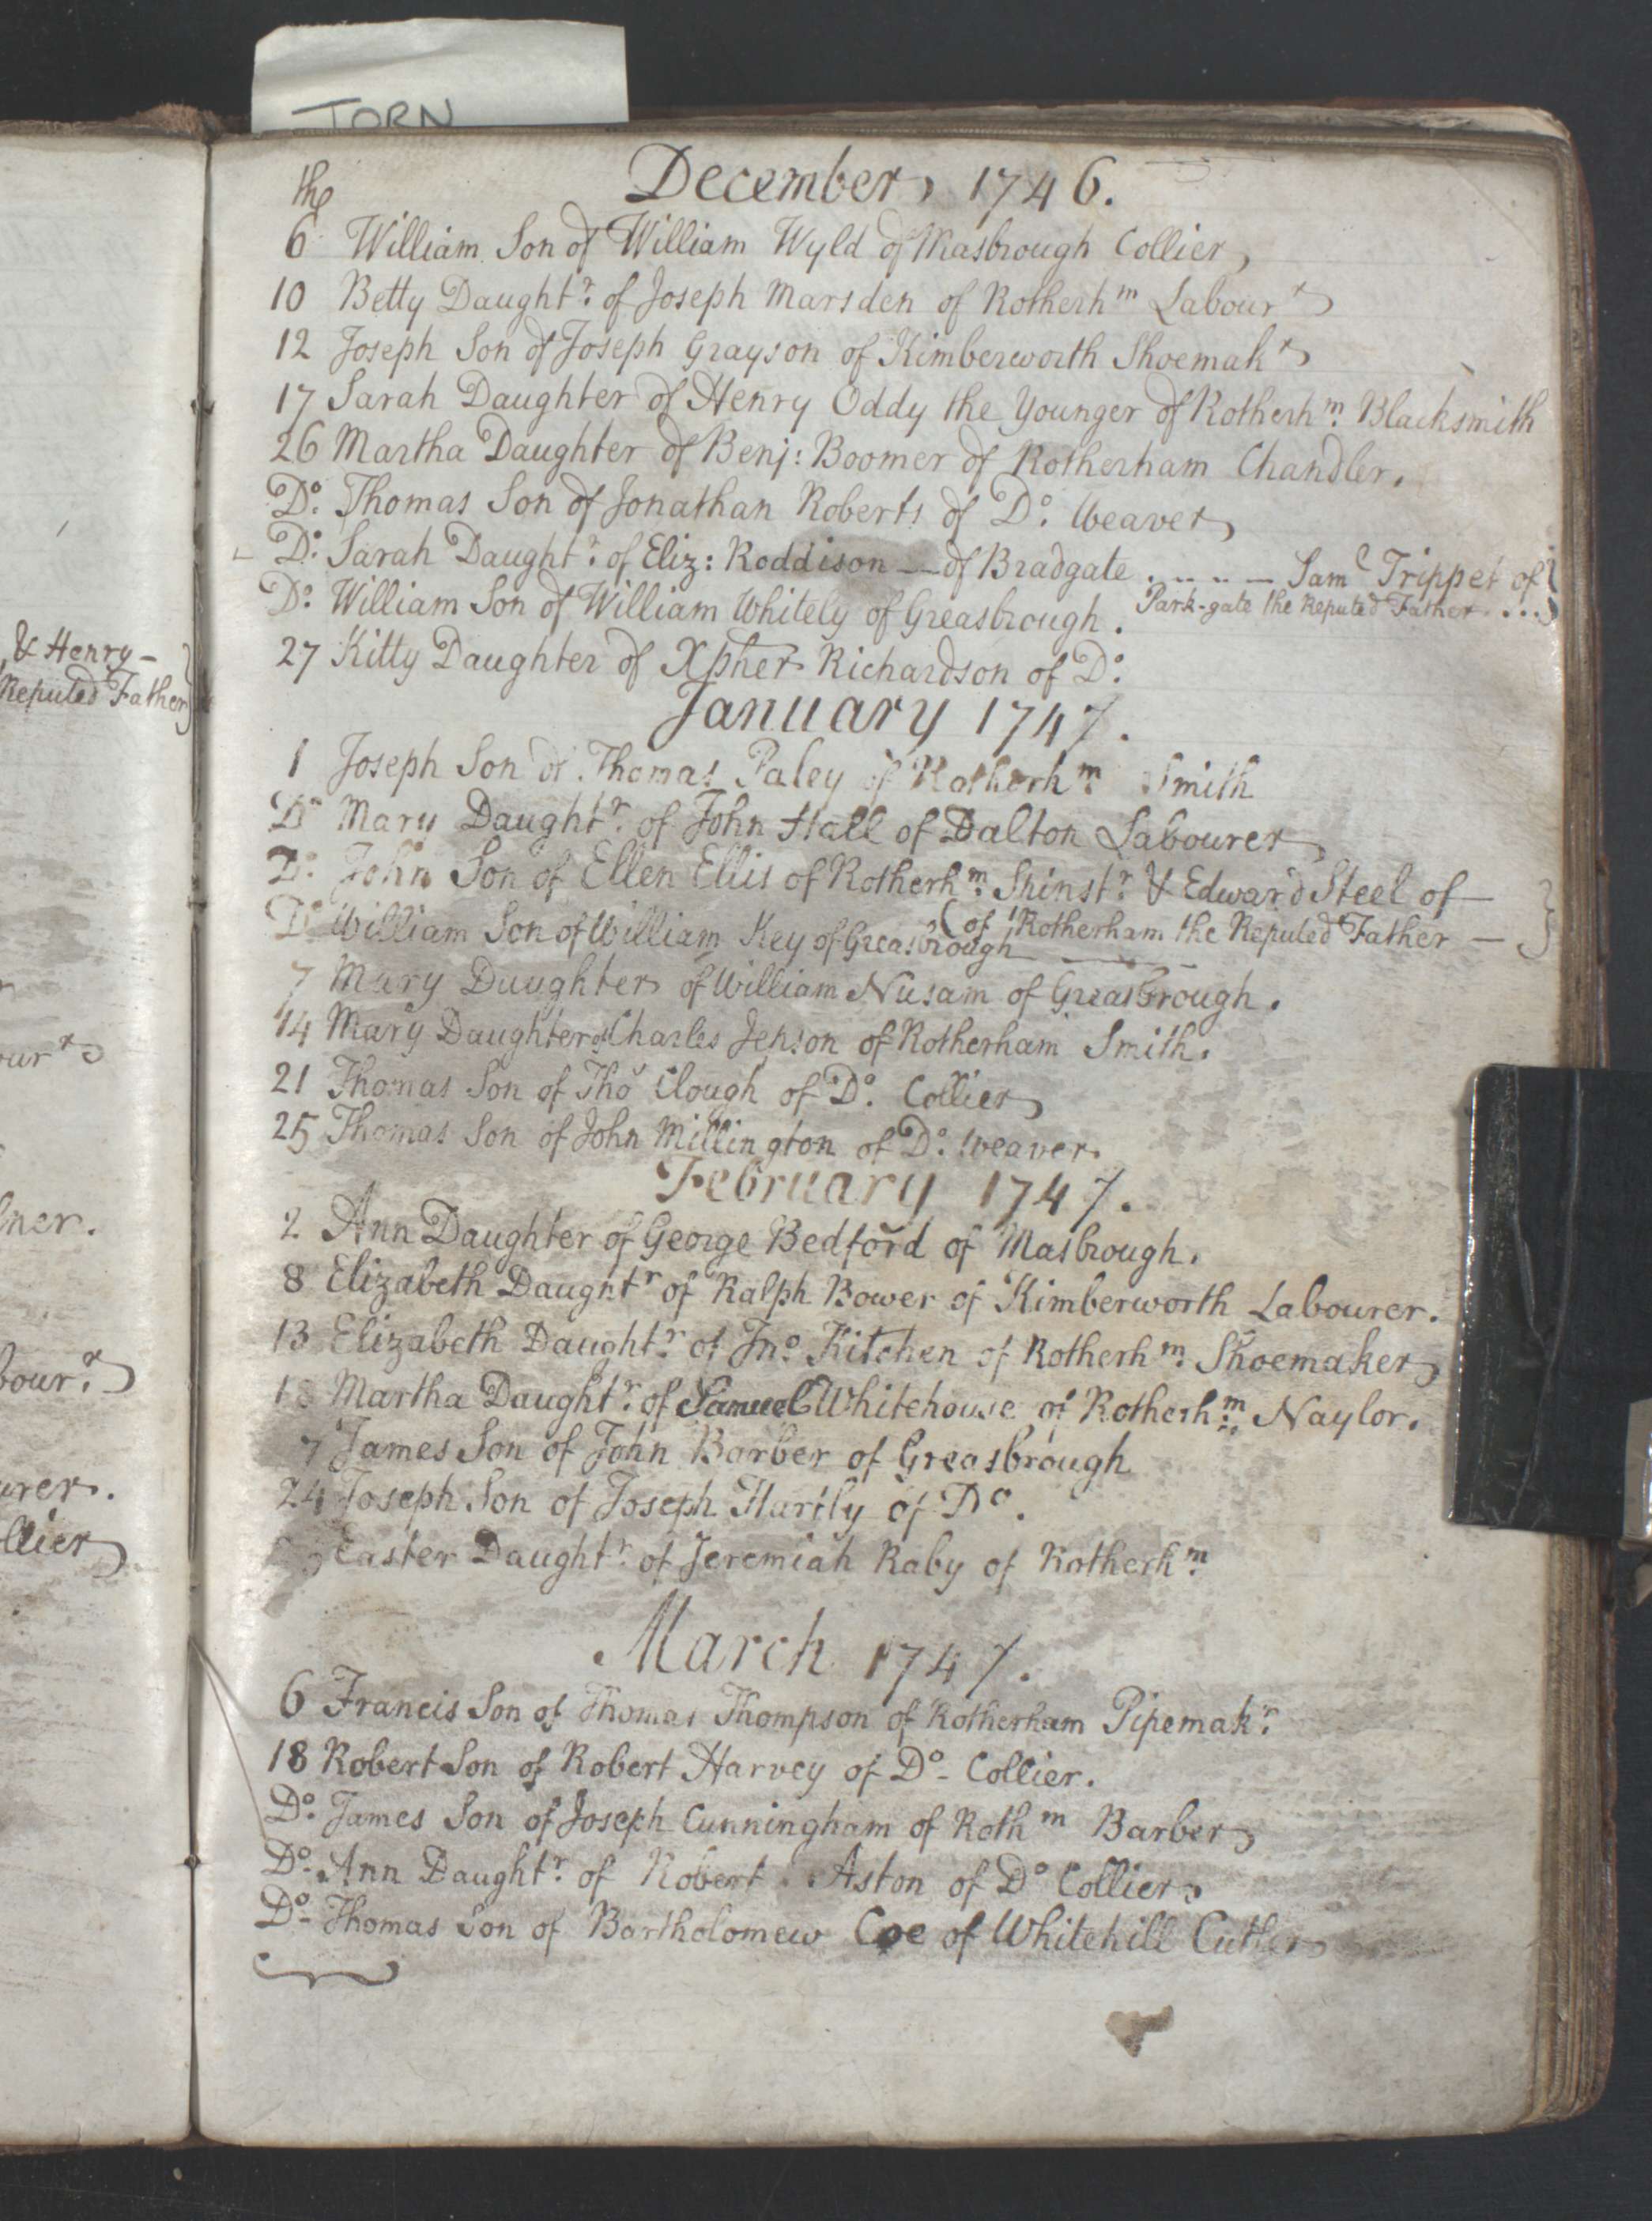 TORN
the December, 1746.
6 William Son of William Wyld of Masbrough Collier,
10 Betty Daughtr. of Joseph Marsden of Rotherhm Labourr
12 Joseph Son of Joseph Grayson of Kimberworth Shoemakr
17 Sarah Daughter of Henry Oddy the Younger of Rotherhm. Blacksmith
26 Martha Daughter of Benj: Boomer of Rotherham Chandler.
Do. Thomas Son of Jonathan Roberts of Do. Weaver
Do. Sarah Daughtr. of Eliz: Roddison — of Bradgate . .. .. — Saml Trippet of
Park-gate the Reputed Father. ...
Do. William Son of William Whitely of Greasbrough.
27 Kitty Daughter of Xpher Richardson of Do.
January 1747.
1 Joseph Son of Thomas Paley of Rotherhm Smith
Do Mary Daughtr. of John Hall of Dalton Labourer
Do. John Son of Ellen Ellis of Rotherhm. Spinstr. & Edward Steel of —
(of Rotherham the Reputed Father —
Do William Son of William Key of Greasbrough
7 Mary Daughter of William Nusam of Greasbrough.
14 Mary Daughter of Charles Jepson of Rotherham Smith.
21 Thomas Son of Tho Clough of Do. Collier
25 Thomas Son of John Millington of Do. Weaver.
February 1747.
2 Ann Daughter of George Bedford of Masbrough.
8 Elizabeth Daughtr of Ralph Bower of Kimberworth Labourer.
13 Elizabeth Daughtr. of Jno. Kitchen of Rotherhm. Shoemaker
18 Martha Daughtr. of Samuel Whitehouse of Rotherhm. Naylor.
James Son of John Barber of Greasbrough
24 Joseph Son of Joseph Hartly of Do.
Easter Daughtr. of Jeremiah Raby of Rotherhm.
March 1747.
6 Francis Son of Thomas Thompson of Rotherham Pipemakr.
18 Robert Son of Robert Harvey of Do - Collier.
Do. James Son of Joseph Cunningham of Rothm Barber
Do. Ann Daughtr. of Robert Aston of Do Collier
Do - Thomas Son of Bartholomew Coe of Whitehill Cutler
& Henry —
Reputed Father
ourr
ner.
bour.r
urer.
llier